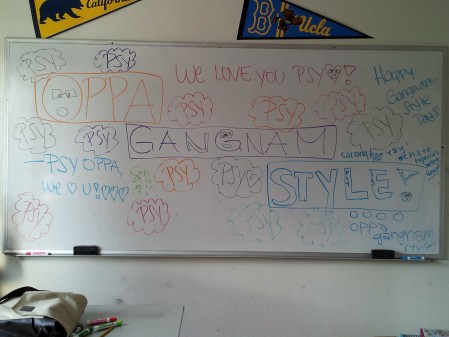 California
Ucla
PSY
PSY
We LOVE YOU PSY
Happy
Gangnam
Style
OPPA
PSY
PSY
PSY
PSY
PSY
PSY
GANGNAM
PSY OPPA,
We U!
PSY
PSY
STYLE!
PSY
PSY
PSY
PSY
oppa
gangnam